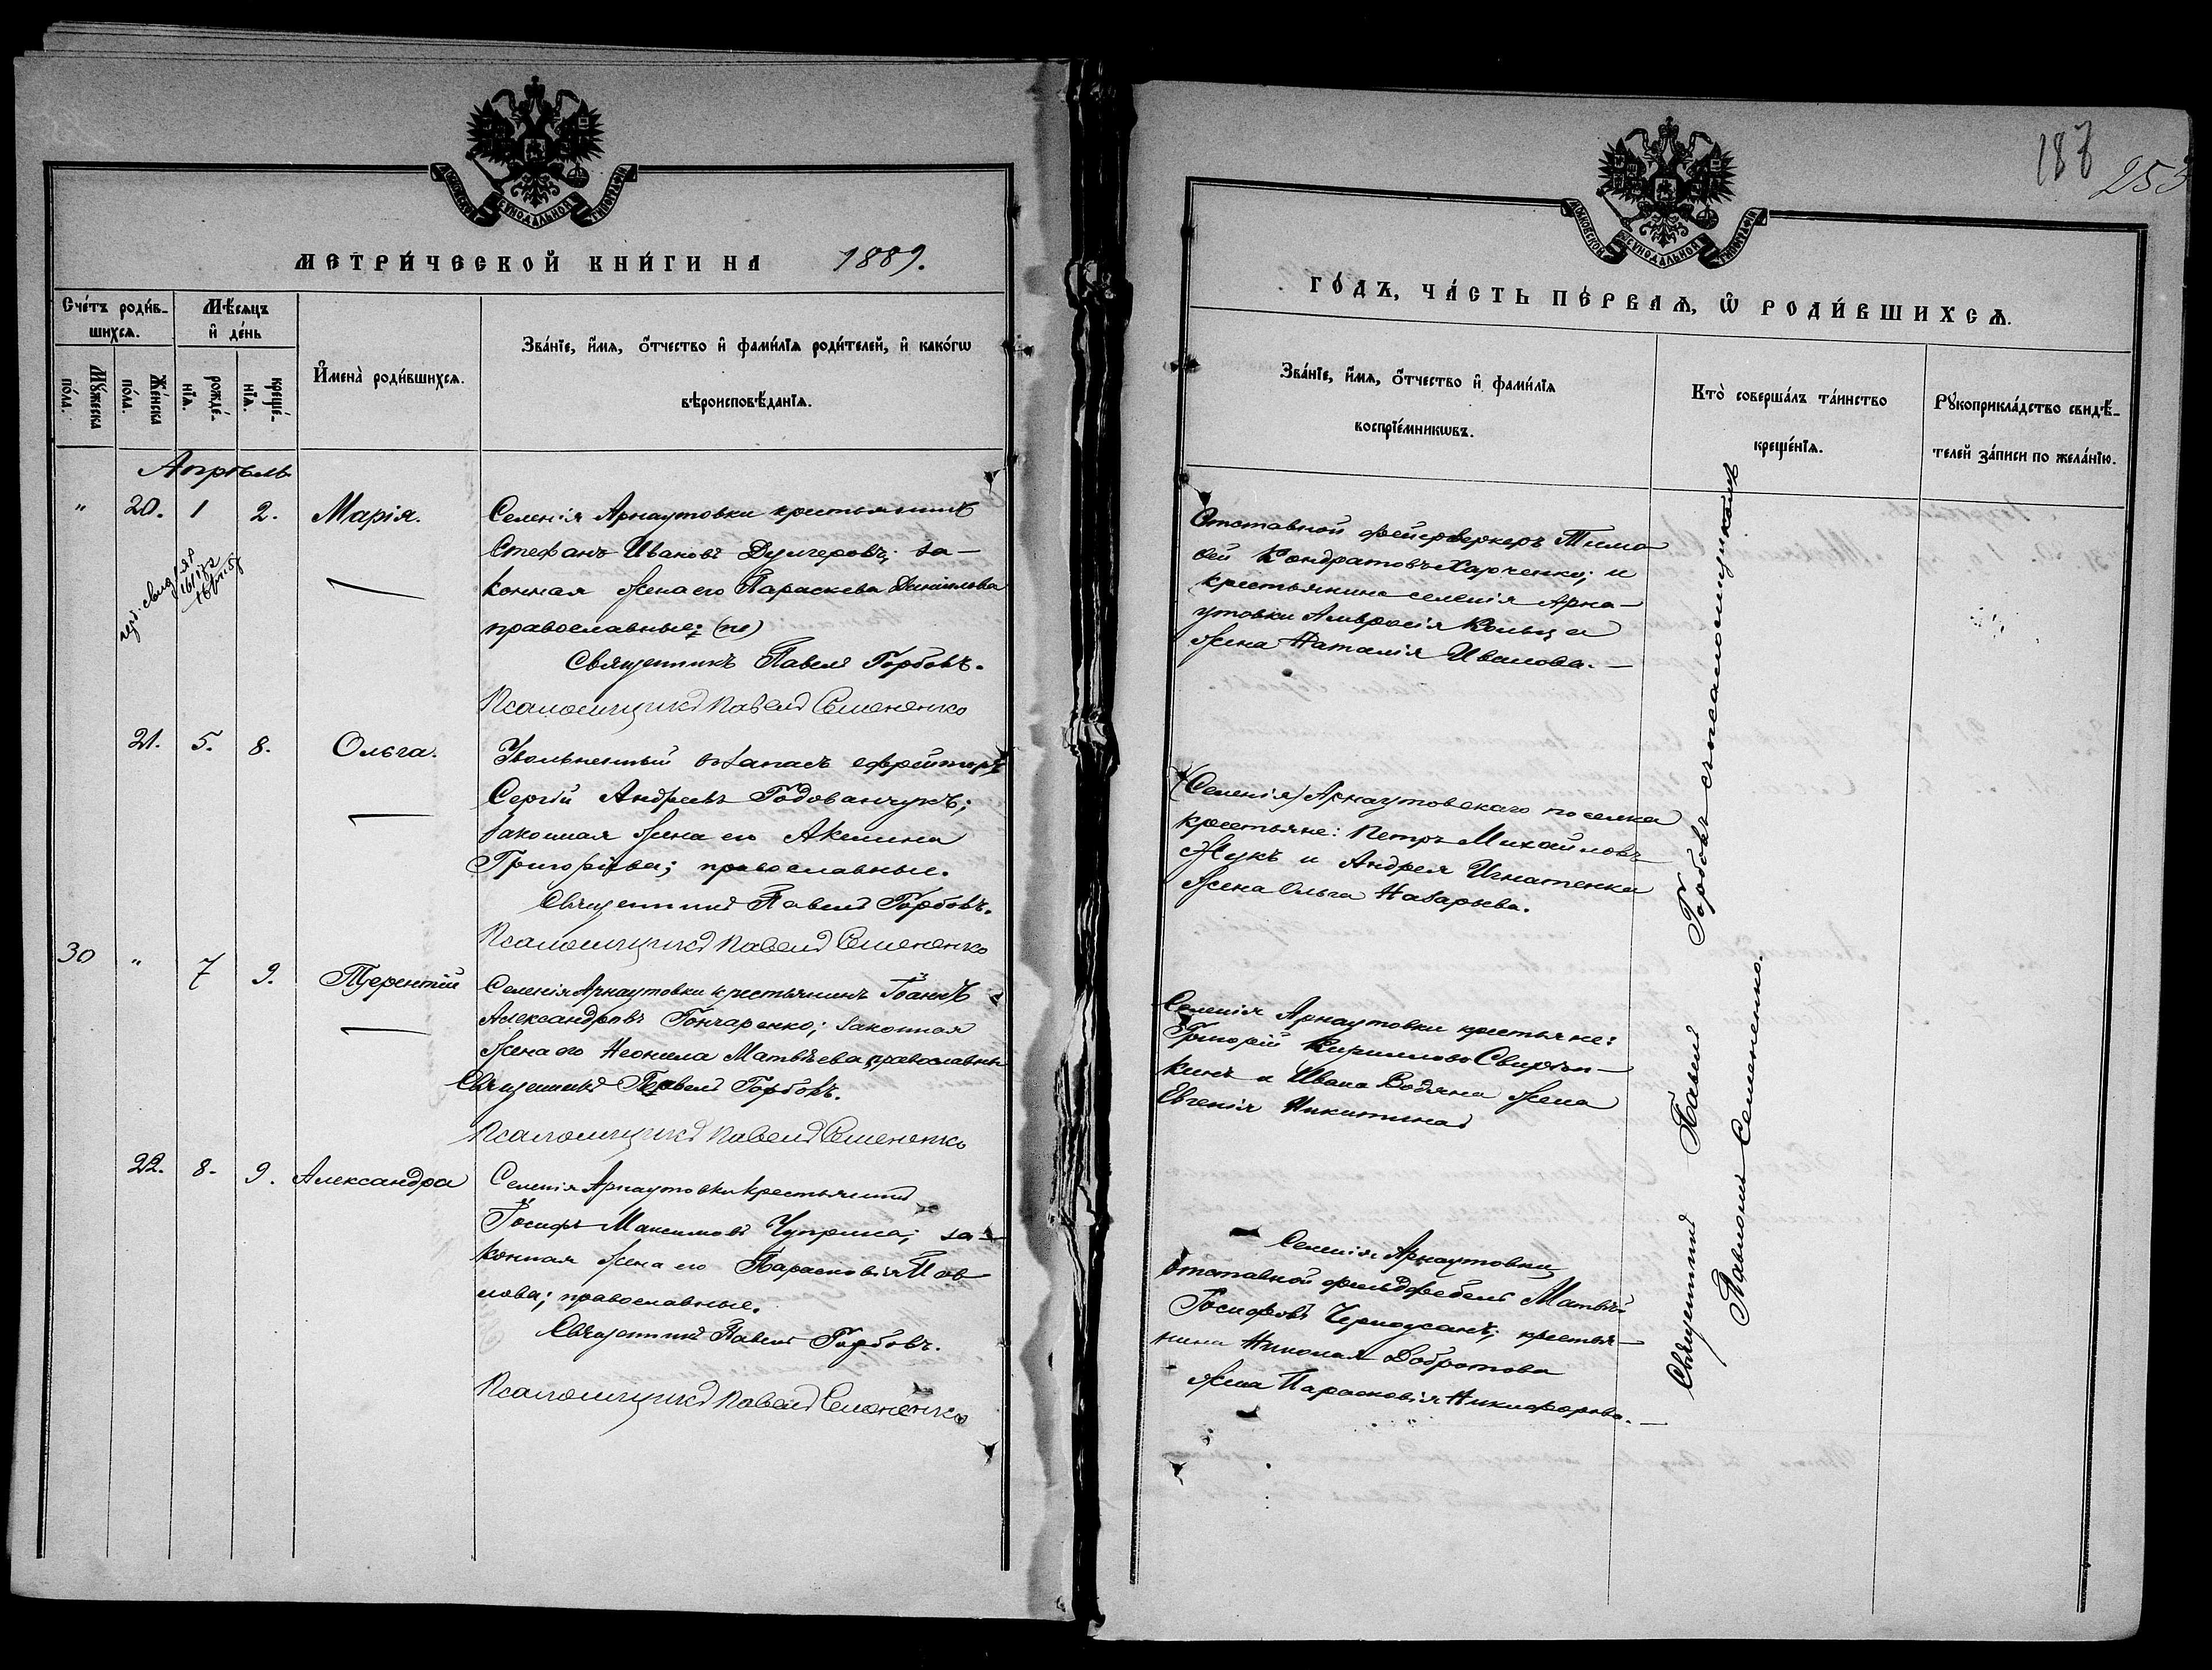 МОСКОВСКОЙ СѴНОДАЛЬНОЙ ТИПОГРАФІИ
МЕТРИ́ЧЕСКОЙ КНИ́ГИ НА 1889.
Сче́тъ роди́в-
шихсѧ.
Мѣ́сѧцъ
и҆ де́нь
Мꙋ́жеска
по́ла.
Же́нска
по́ла.
рожде́-
нїѧ.
креще́-
нїѧ.
И҆мена̀ роди́вшихсѧ.
Зва́нїе, и҆́мѧ, ѻ҆́тчество и҆ фами́лїѧ роди́телей, и҆ како́гѡ
вѣроисповѣ́данїѧ.
Апрѣль
" 20. 1 2. Марія.
Селенія Арнаутовки крестьянинъ
Стефанъ Ивановъ Дулгеровъ; за-
конная жена его Параскева Данилова
православные; (не)
Священникъ Павелъ Горбовъ.
Псаломщикъ Павелъ Семененко
21. 5. 8. Ольга.
Увольненный въ запасъ ефрейторъ
Сергій Андреевъ Годованчукъ;
законная жена его Акилина
Григоріева; православные.
Священникъ Павелъ Горбовъ.
Псаломщикъ Павелъ Семененко
30 " 7 9. Терентій
Селенія Арнаутовки крестьянинъ Іоаннъ
Александровъ Гончаренко; законная
жена его Неонила Матвѣева, православные
Священникъ Павелъ Горбовъ.
Псаломщикъ Павелъ Семененко
22. 8. 9. Александра
Селенія Арнаутовки крестьянинъ
Іосифъ Максимовъ Чуприна; за-
конная жена его Парасковія Пав-
лова; православные.
Священникъ Павелъ Горбовъ.
Псаломщикъ Павелъ Семененко
187 253
МОСКОВСКОЙ СѴНОДАЛЬНОЙ ТИПОГРАФІИ
ГО́ДЪ, ЧА́СТЬ ПЕ́РВАѦ, Ѡ҆ РОДИ́ВШИХСѦ.
Зва́нїе, и҆́мѧ, ѻ҆́тчество и҆ фами́лїѧ
воспрїе́мникѡвъ.
Кто̀ соверша́лъ та́инство
креще́нїѧ.
Рꙋкоприкла́дство свидѣ́-
телей за́писи по жела́нїю.
Отставной фейерверкеръ Тимо
фей Кондратовъ Харченко; и
крестьянина селенія Арна-
утовки Амвросія Кольца
жена Наталія Иванова.-
(Селенія) Арнаутовскаго поселка
крестьяне: Петръ Михайловъ
Жукъ и Андрея Игнатенка
жена Ольга Назарьева.
Селенія Арнаутовки крестьяне:
Григорій Кирилловъ Свиреп-
кинъ и Ивана Водяна жена
Евгенія Никитина
Селенія Арнаутовки
отставной фельдфебель Матвѣй
Іосифовъ Черноусанъ; крестья-
нина Николая Добротова
жена Парасковія Никифорова.-
Священникъ Павелъ Горбовъ съ псаломщикомъ
Павломъ Семененко.